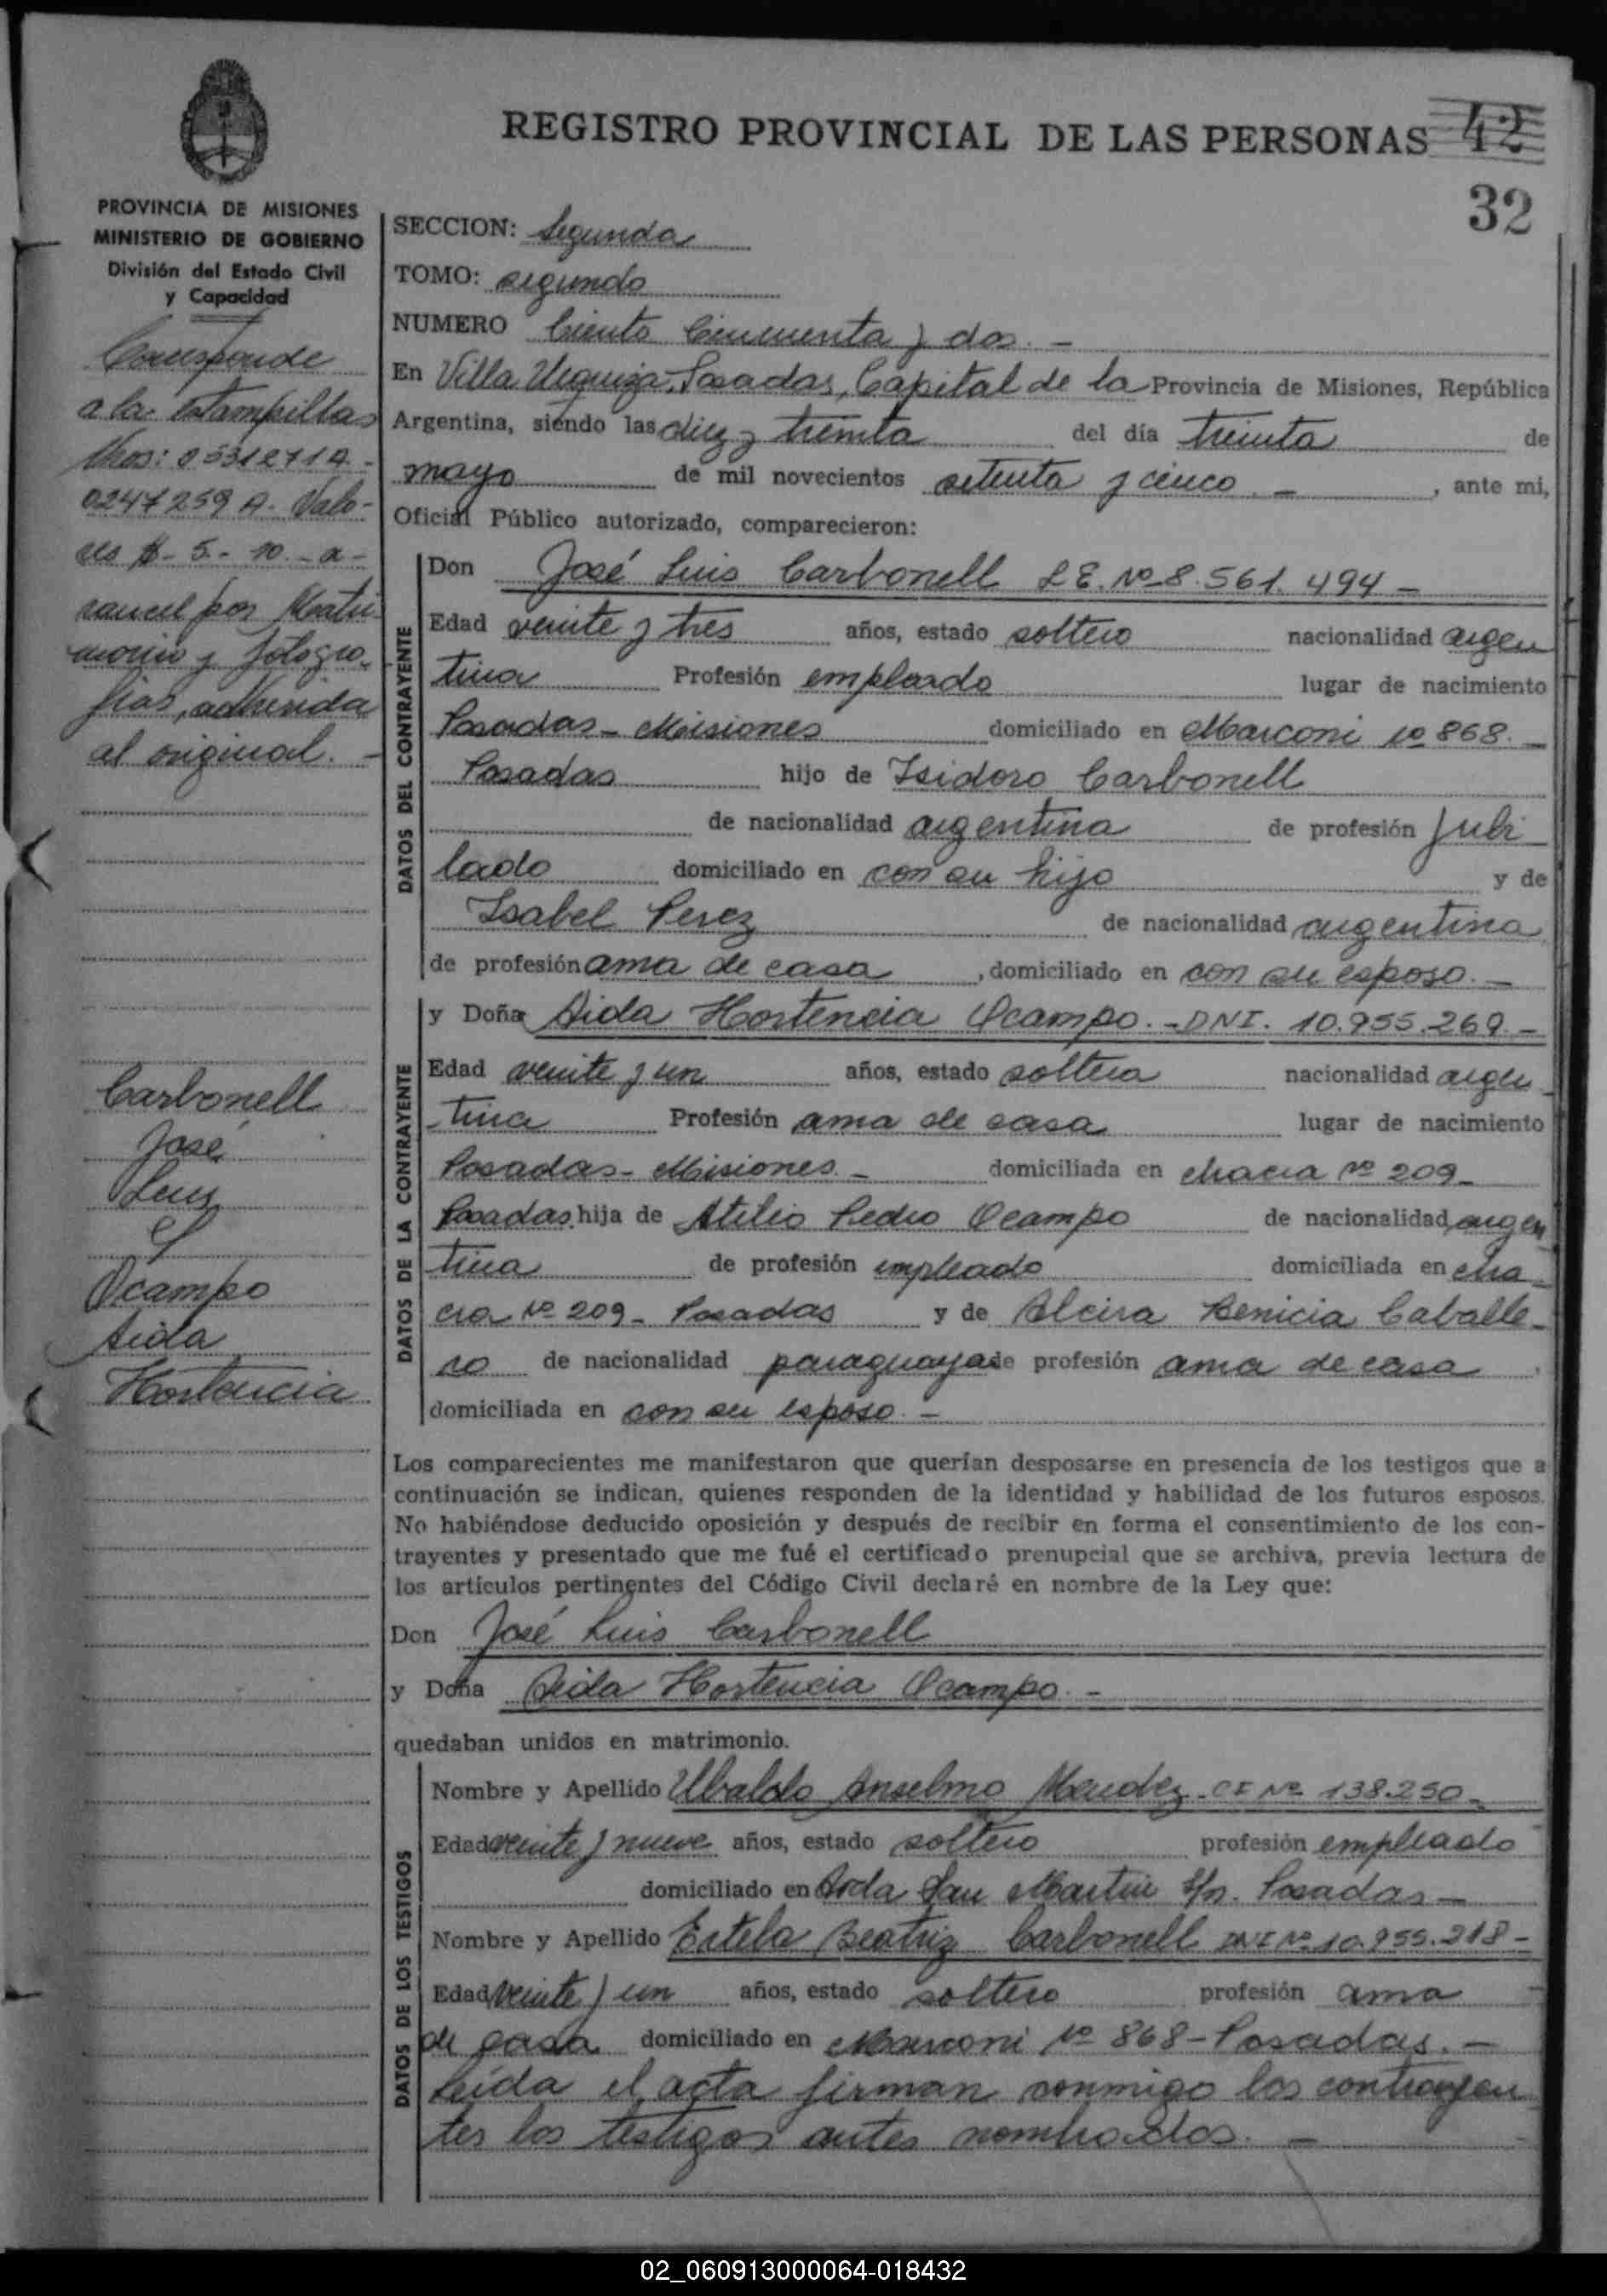 REGISTRO PROVINCIAL DE LAS PERSONAS 42
32
PROVINCIA DE MISIONES
MINISTERIO DE GOBIERNO
División del Estado Civil
y Capacidad
Corresponde
a la estampillas
Nros: 0331271A-
0247259 A. Valo-
res $ - 5.- 10.- a-
rancel por Matri
monio y fotogra-
fias, adherida
al original. -
Carbonell
José
Luis
y
Ocampo
Aida
Hortencia
SECCION: Segunda
TOMO: segundo
NUMERO Ciento Cincuenta y dos. -
En Villa Urquiza, Posadas, Capital de la Provincia de Misiones, República
Argentina, siendo las diez y treinta del día treinta de
mayo de mil novecientos setenta y cinco. - , ante mi,
Oficial Público autorizado, comparecieron:
DATOS DEL CONTRAYENTE
Don José Luis Carbonell L E. Nº 8.561.494 -
Edad veinte y tres años, estado soltero nacionalidad argen
tina Profesión empleado lugar de nacimiento
Posadas - Misiones domiciliado en Marconi nº 868. -
Posadas hijo de Isidoro Carbonell
de nacionalidad argentina de profesión Jubi
lado domiciliado en con su hijo y de
Isabel Perez de nacionalidad argentina
de profesión ama de casa , domiciliado en con su esposo. -
DATOS DE LA CONTRAYENTE
y Doña Aida Hortencia Ocampo. - DNI. 10.955.269 -
Edad veinte y un años, estado soltera nacionalidad argen
-tina Profesión ama de casa lugar de nacimiento
Posadas - Misiones. - domiciliada en chacra nº 209 -
Posadas. hija de Atilio Pedro Ocampo de nacionalidad argen
tina de profesión empleado domiciliada en cha
cra Nº 209 - Posadas y de Alcira Benicia Caballe-
ro de nacionalidad paraguaya de profesión ama de casa .
domiciliada en con su esposo. -
Los comparecientes me manifestaron que querían desposarse en presencia de los testigos que a
continuación se indican, quienes responden de la identidad y habilidad de los futuros esposos.
No habiéndose deducido oposición y después de recibir en forma el consentimiento de los con-
trayentes y presentado que me fué el certificado prenupcial que se archiva, previa lectura de
los artículos pertinentes del Código Civil declaré en nombre de la Ley que:
Don José Luis Carbonell
y Doña Aida Hortencia Ocampo. -
quedaban unidos en matrimonio.
DATOS DE LOS TESTIGOS
Nombre y Apellido Ubaldo Anselmo Mendez - CI Nº 138.250 -
Edad veinte y nueve años, estado soltero profesión empleado
domiciliado en Avda San Martin s/n. Posadas -
Nombre y Apellido Estela Beatriz Carbonell DNI Nº 10.955.218 -
Edad veinte y un años, estado soltero profesión ama
de casa domiciliado en Marconi Nº 868 - Posadas. -
Leida el acta firman conmigo los contrayen
tes los testigos antes nombrados. -
02_060913000064-018432